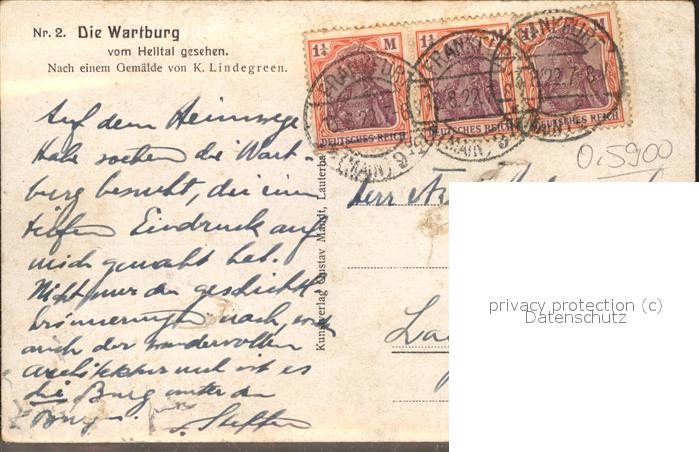 Nr. 2. Die Wartburg
vom Helltal gesehen.
Nach einem Gemälde von K. Lindegreen.
1¼ M 1¼ M 1¼ M
FRANKFURT
(MAIN) 9
DEUTSCHES REICH DEUTSCHES REICH DEUTSCHES REICH
0,5900
Auf dem Heimwege
habe soeben die Wart-
burg besucht, die einen
tiefen Eindruck auf
mich gemacht hat.
Nicht nur den geschichtl.
Erinnerungen nach, auch
der wundervollen
Architektur und ist es
die Burg unter den
Burgen.
Steffen
Kunstverlag Gustav Mandt, Lauterba
Herr
privacy protection (c)
Datenschutz